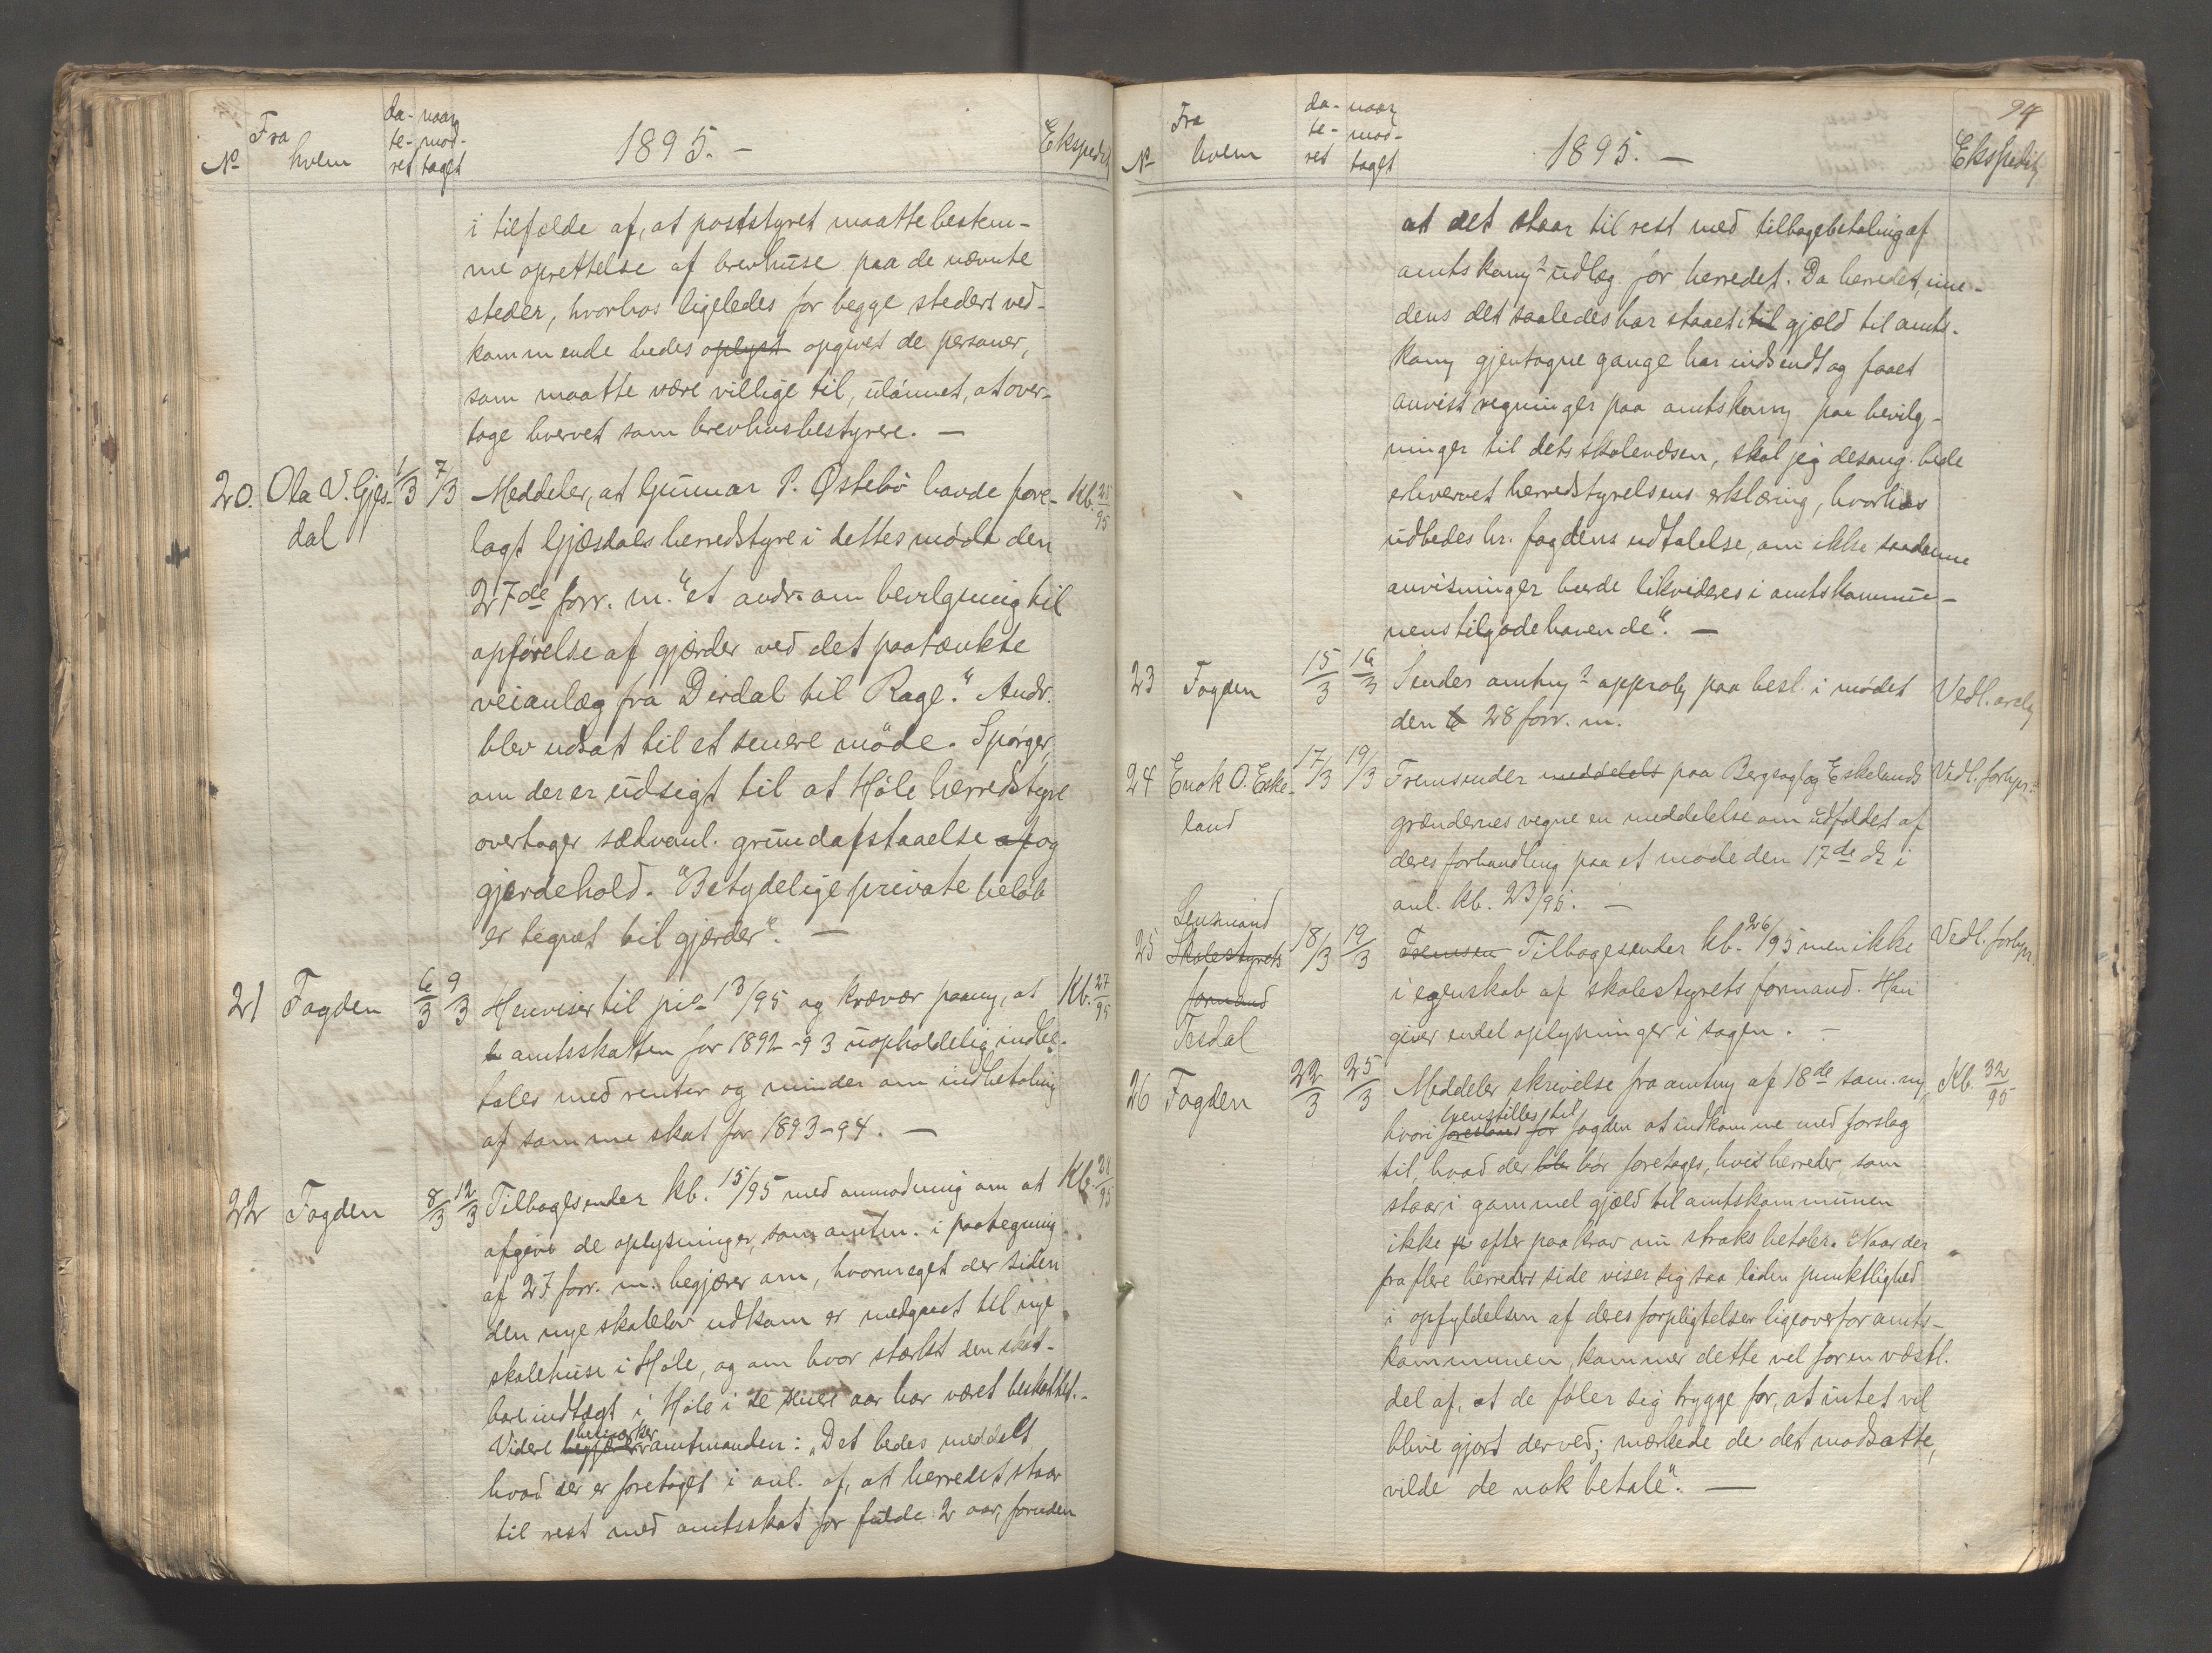 No Fra hvem da-te-ret naar mod-taget 1895. — Ekspedit
i tilfælde af, at poststyret maatte bestem-
me oprettelse af brevhuse paa de nævnte
steder, hvorhos ligeledes for begge steders ved-
kommende bedes oplyst opgivet de personer,
som maatte være villige til, ulønnet, at over-
tage hvervet som brevhusbestyrere. —
20. Ola V. Gjes- 1/3 7/3 Meddeler, at Gunnar P. Østebö havde fore- Kb. 25/95
dal lagt Gjæsdals herredstyre i dettes møde den
27de forr. m. "et andr. om bevilgning til
opførelse af gjærder ved det paatænkte
veianlæg fra Dirdal til Rage." Andr.
blev udsat til et senere möde. Spørger,
om der er udsigt til at Høle herredstyre
overtager sædvanl. grundafstaaelse af og
gjerdehold. "Betydelige private beløb
er tegnet til gjærder". —
21 Fogden 6/3 9/3 Henviser til 13/95 og kræver paany, at Kb. 27/95
amtsskatten for 1892-93 uopholdelig indbe-
tales med renter og minder om indbetaling
af samme skat for 1893-94. —
22 Fogden 8/3 12/3 Tilbagesender kb. 15/95 med anmodning om at Kb. 28/95
afgive de oplysninger, som amtm. i paategning
af 27 forr. m. begjærer om, hvormeget der siden
den nye skolelov udkom er medgaaet til nye
skolehuse i Høle, og om hvor stærkt den skat-
bare indtægt i Høle i de senere aar har været beskattet. -
bemærker
Videre begjærer amtmanden: "Det bedes meddelt
hvad der er foretaget i anl. af, at herredet staar
til rest med amtsskat for fulde 2 aar, foruden
94
No Fra hvem da-te-ret naar mod-taget 1895. — Ekspedit
at det staar til rest med tilbagebetaling af
amtskom. udlæg for herredet. Da herredet, ime-
dens det saaledes har staaet i til gjæld til amts-
kom. gjentagne gange har indsendt og faaet
anvist regninger paa amtskom. paa bevilg-
ninger til dets skolevæsen, skal jeg desang. bede
erhvervet herredstyrelsens erklæring, hvorhos
udbedes hr. fogdens udtalelse, om ikke saadanne
anvisninger burde likvideres i amtskommu-
nens tilgodehavende". —
23 Fogden 15/3 16/3 Sender amtm. approb. paa besl. i mødet Vedl.
den 28 forr. m.
24 Enok O. Eske- 17/3 19/3 Fremsender meddelels paa Bergsagl og Eskelands Vedl. forhpr.
land grændernes vegne en meddelelse om udfaldet af
deres forhandling paa et møde den 17de ds i
anl. kb. 23/95. —
Lensmand
25 Skolestyrets 18/3 19/3 Fremsen Tilbagesender kb. 26/95 men ikke Vedl. forhpr.
formand i egenskab af skolestyrets formand. Han
Tesdal giver endel oplysninger i sagen. —
26 Fogden 22/3 25/3 Meddeler skrivelse fra amtm. af 18de sam. m. Kb. 32/95
henstilles til
hvori foreslaaes for fogden at indkomme med forslag
til, hvad der bör foretages, hvis herreder, som
staar i gammel gjæld til amtskommunen
ikke efter paakrav nu straks betaler. "Naar der
fra flere herreders side viser sig saa liden punktlighed
i opfyldelsen af deres forpligtelser ligeoverfor amts-
kommunen, kommer dette vel for en væstl.
del af, at de føler sig trygge for, at intet vil
blive gjort derved; mærkede de det modsatte,
vilde de nok betale". —